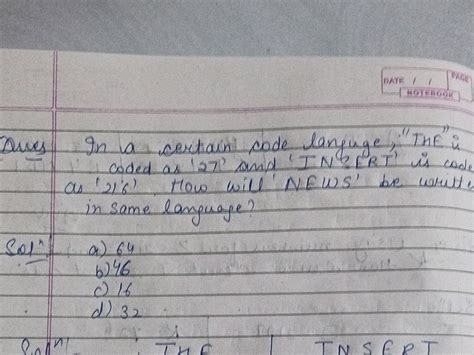 DATE / / PAGE
NOTEBOOK
Ques In a certain code languge, "THE" is
coded as '27' and 'INSERT' is code
as '216'. How will 'NEWS' be writt
in same language?
Solⁿ: a) 64
b) 46
c) 16
d) 32
Solⁿ: THE | INSERT